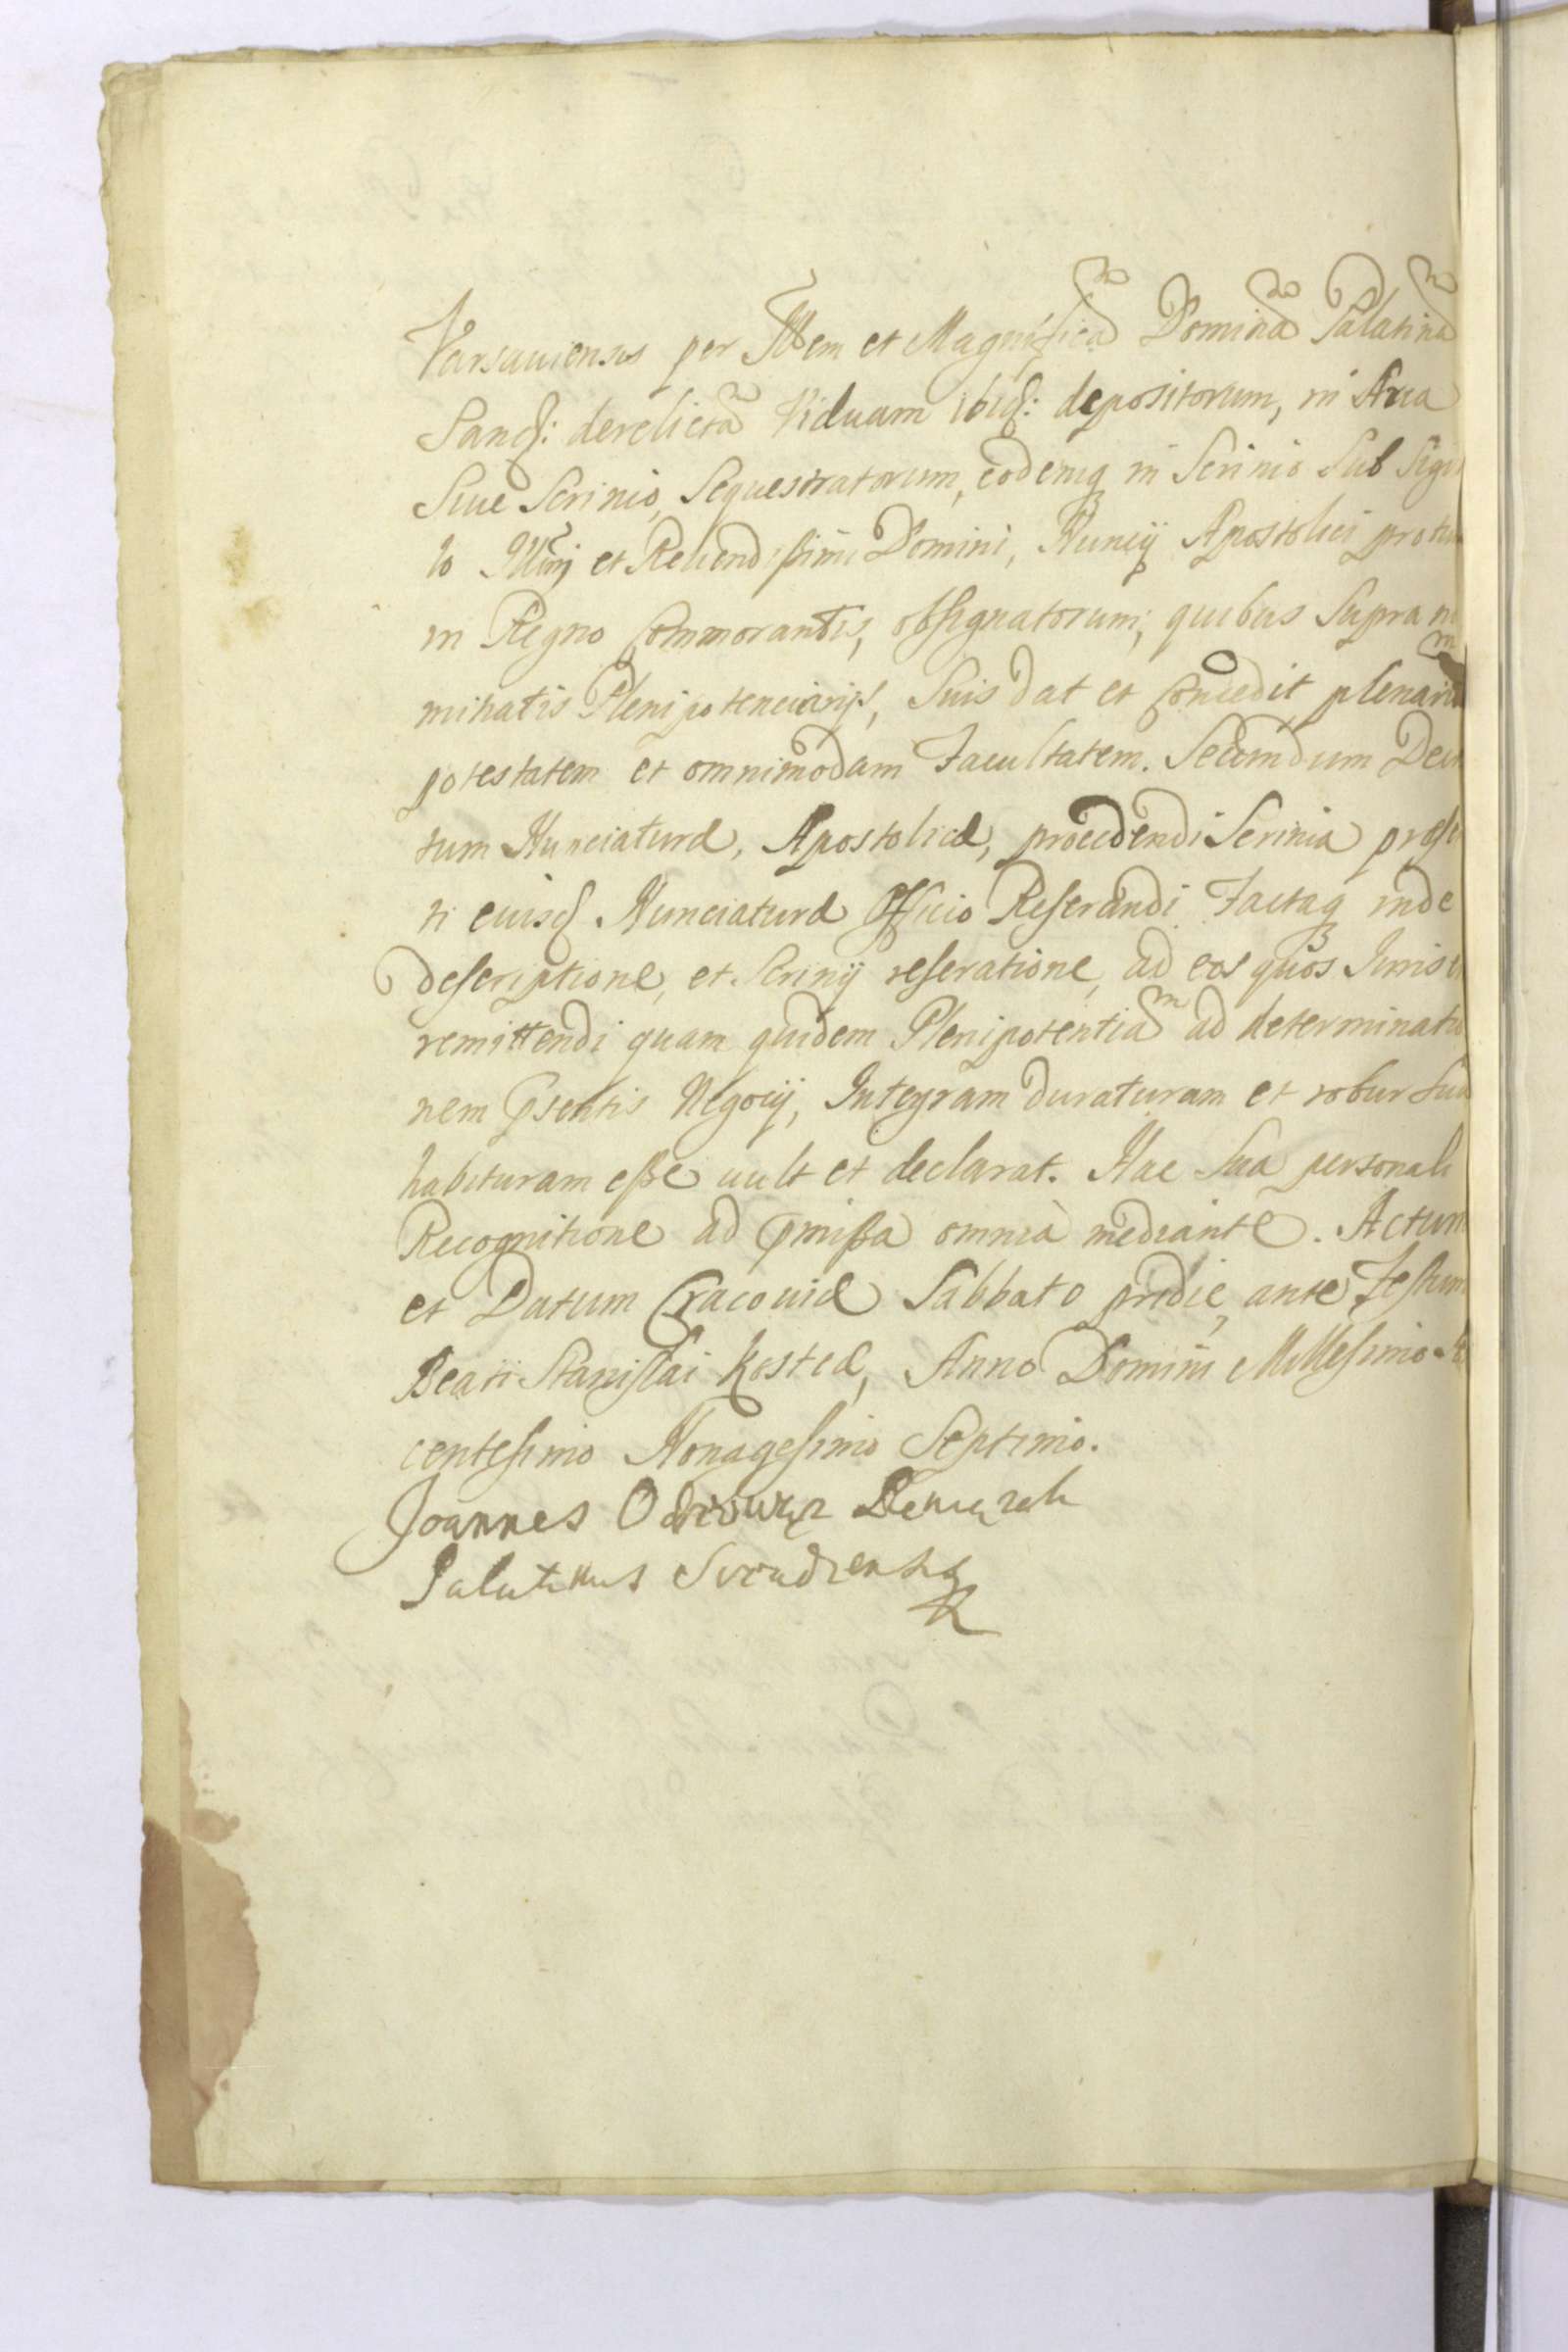 Varsauiensis per Illem et Magnificam Dominam Palatinam
Sand: derelictam Viduam ibid: depositorum, in Arca
Siue Scrinio, Sequestratorum, eodemq in Scrinio Sub Sigil
lo Illmi et Reuerendissimi Domini, Nuncij Apostolici pro tunc
in Regno Commorantis, obsignatorum; quibus Supra no
minatis Plenipotenciarijs, Suis dat et Concedit plenariam
potestatem et omnimodam Facultatem. Secundum Decre
tum Nunciaturæ, Apostolicæ, procedendi Scrinia præsen
ti eiusd Nunciaturæ Officio Reserandi Factaq inde
descriptione, et Scrinij reseratione, ad eos quos Iuris
remittendi quam quidem Plenipotentiam ad determinatio
nem Psentis Negocij, Integram duraturam et robur Suu
habituram esse uult et declarat. Hac Sua personali
Recognitione ad Pmissa omnia mediante. Actum
et Datum Cracouiæ Sabbato pridie ante Festum
Beati Stanislai Kostcæ, Anno Domini Millesimo
centesimo Nonagesimo Septimo.
Joannes Odrowąz Pieniązek
Palatinus Siradiensis